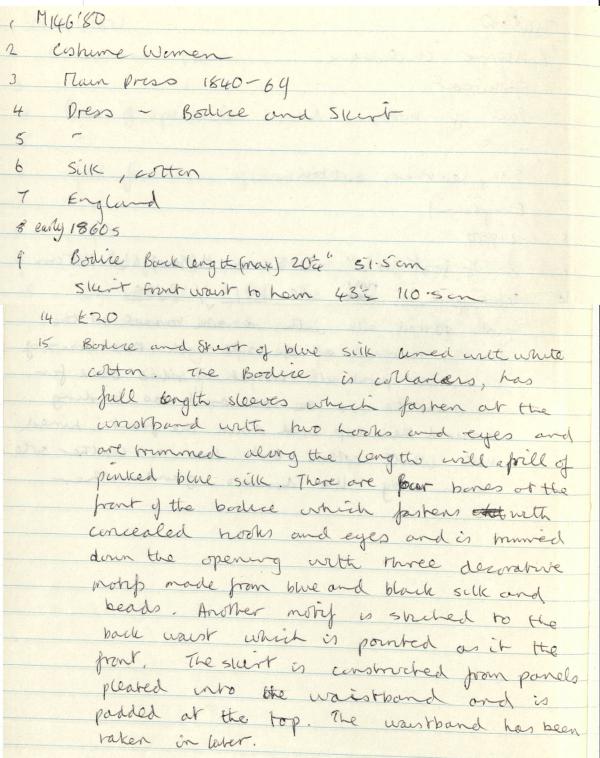 1 M146'80
2 Costume Women
3 Main Press 1840-69
4 Dress ~ Bodice and Skirt
5 -
6 Silk, cotton
7 England
8 early 1860s
9 Bodice Back length (max) 20¼" 51.5cm
Skirt front waist to hem 43½ 110.5cm
14 £20
15 Bodice and Skirt of blue silk lined with white
cotton. The Bodice is collarless, has
full length sleeves which fasten at the
wristband with two hooks and eyes and
are trimmed along the lengths with a frill of
pinked blue silk. There are four bones at the
front of the bodice which fastens with
concealed hooks and eyes and is trimmed
down the opening with three decorative
motifs made from blue and black silk and
beads. Another motif is stitched to the
back waist which is pointed as is the
front. The skirt is constructed from panels
pleated into the waistband and is
padded at the top. The waistband has been
taken in later.